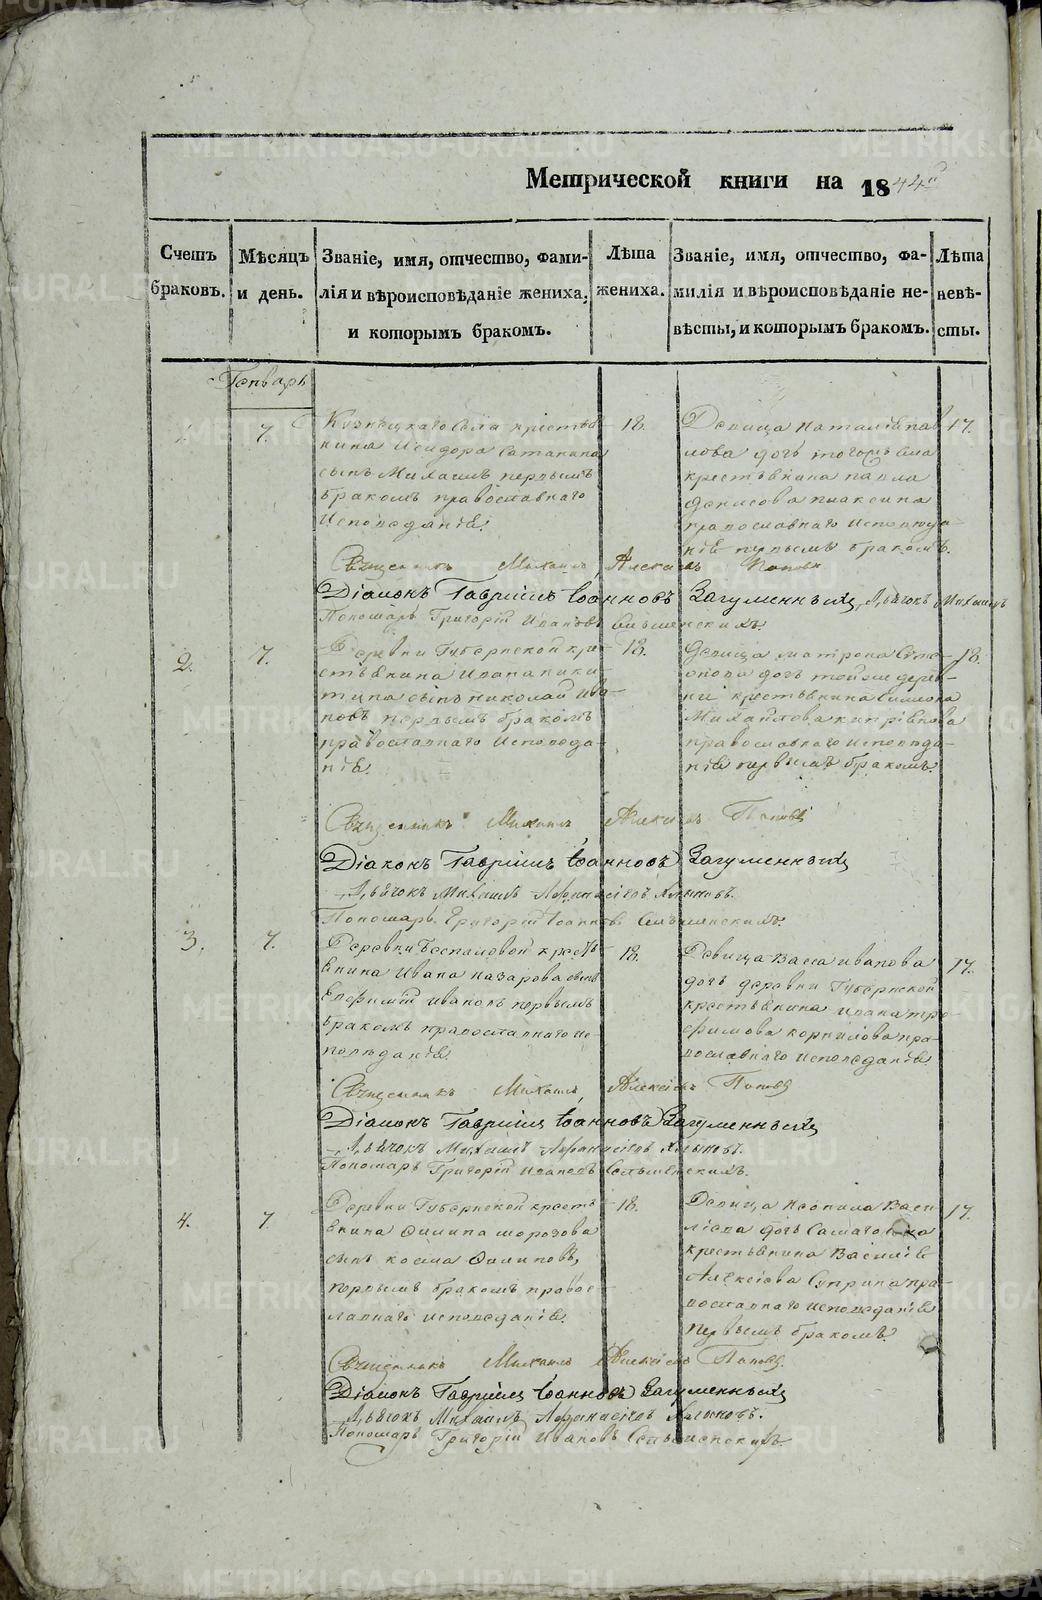 Метрической книги на 1844й
Счетъ браковъ.
Мѣсяцъ и день.
Званіе, имя, отчество, фами-
лія и вѣроисповѣданіе жениха,
и которымъ бракомъ.
Лѣта жениха.
Званіе, имя, отчество, фа-
милія и вѣроисповѣданіе не-
вѣсты, и которымъ бракомъ.
Лѣта невѣ-
сты.
Генварь
1.
7.
Кузнецкаго села крестья
нина Исидора
сынъ Михаилъ первымъ
бракомъ православнаго
Исповеданіе.
18.
Девица Наталія Пав
лова дочь тогожъ села
крестьянина Павла
Денисова
православнаго Исповѣда-
ніе первымъ бракомъ.
17.
Священникъ Михаилъ Алексѣевъ Поповъ
Діаконъ Гавріилъ Іоанновъ Загуменныхъ, Дьячокъ Михаилъ
Пономарь Григорій Ивановъ
2.
7.
Деревни Губернской кре-
стьянина Ивана Ники-
тина сынъ Николай Ива-
новъ первымъ бракомъ
православнаго Исповода-
ніе.
18.
Девица Матрона Симе-
онова дочь той же дерев-
ни крестьянина Симиона
Михайлова Кипріянова
православнаго Исповѣда-
ніе первымъ бракомъ.
18.
Священникъ Михаилъ Алексѣевъ Поповъ
Діаконъ Гавріилъ Іоанновъ Загуменныхъ
Дьячокъ Михаилъ Афанасіевъ Хлыновъ.
Пономарь Григорій Іоанновъ
3.
7.
Деревни Беспаловой кресть
янина Ивана Назарова сынъ
Елфимій Ивановъ первымъ
бракомъ православнаго Ис
повѣданіе
18.
Девица Васса Иванова
дочь деревни Губернской
крестьянина Ивана Тро-
фимова Корнилова пра-
вославнаго Исповеданіе.
17.
Священникъ Михаилъ Алексѣевъ Поповъ
Діаконъ Гавріилъ Іоанновъ Загуменныхъ
Дьячокъ Михаилъ Афанасіевъ Хлыновъ.
Пономарь Григорій Ивановъ
4.
7.
Деревни Губернской кресть
янина Филипа Морозова
сынъ Косма Филиповъ,
первымъ бракомъ правос
лавнаго Исповеданіе.
18.
Девица Неонила Васи-
ліева дочь
крестьянина Василіе
Алексіева Суприна пра-
вославнаго Исповеданіе
первымъ бракомъ.
17.
Священникъ Михаилъ Алексѣевъ Поповъ.
Діаконъ Гавріилъ Іоанновъ Загуменныхъ
Дьячокъ Михаилъ Афанасіевъ Хлыновъ.
Пономарь Григорій Ивановъ
METRIKI.GASO-URAL.RU